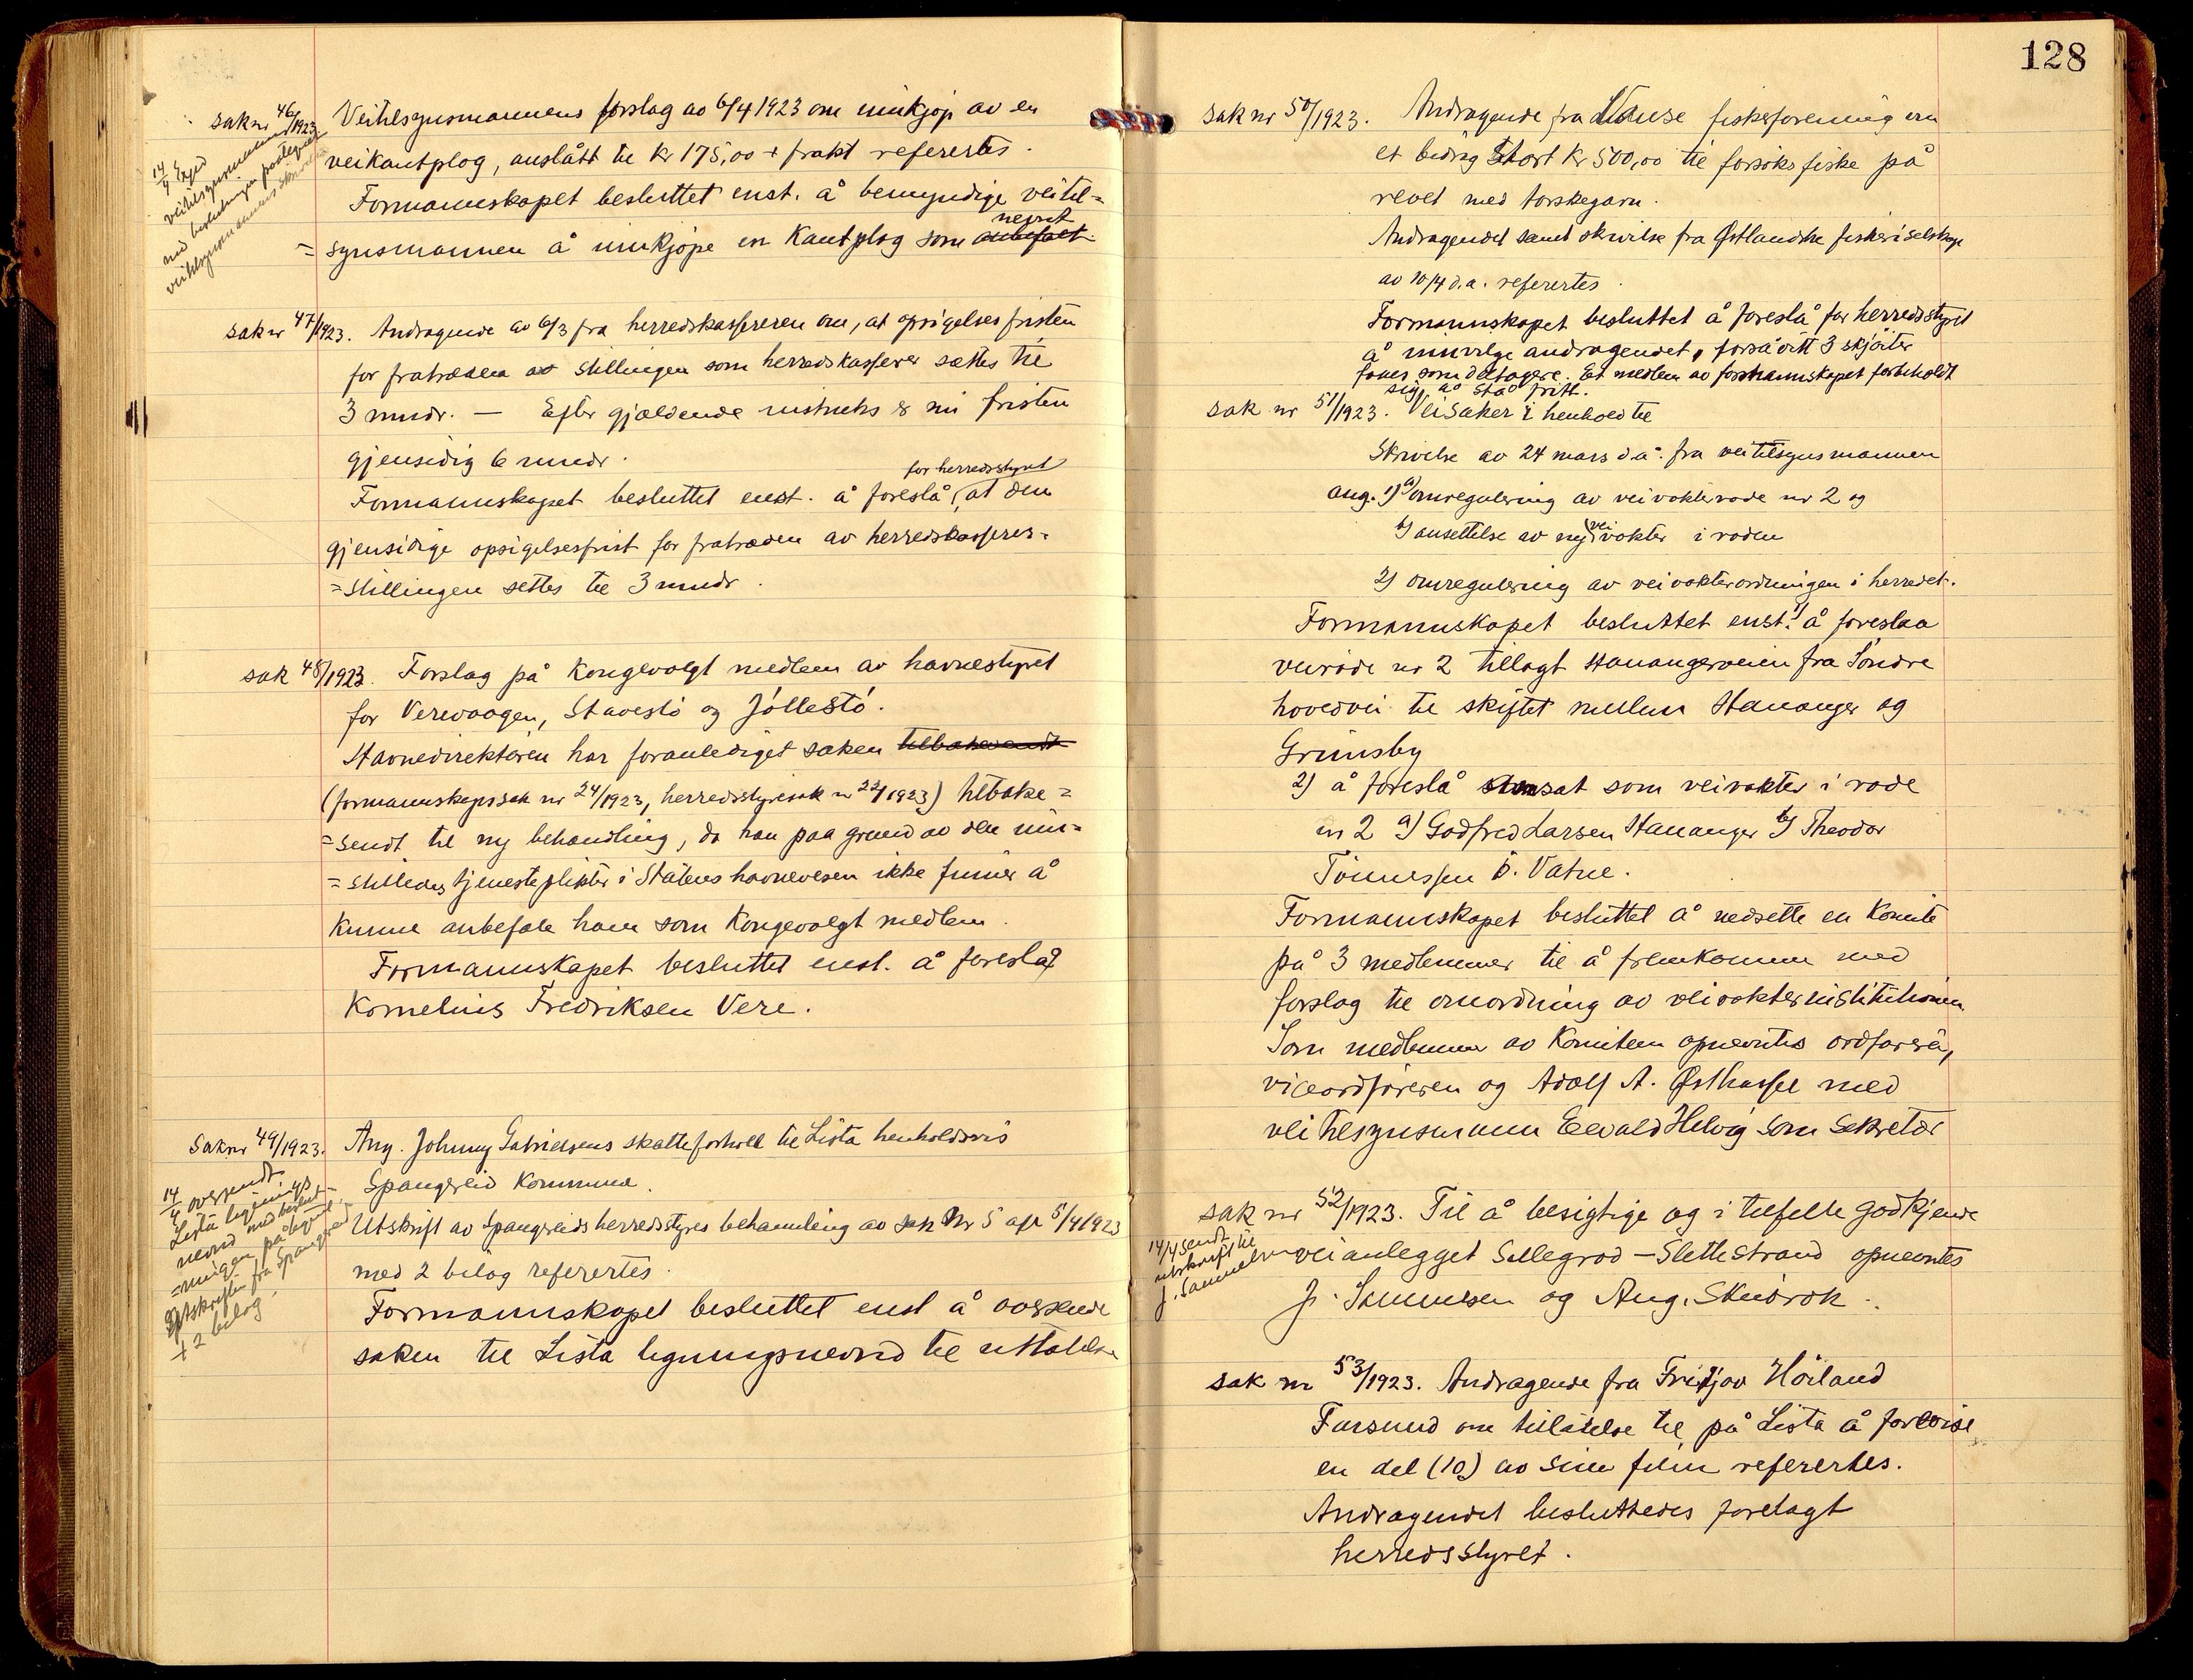 sak nr 46/1923. Veitilsynsmannens forslag av 6/4 1923 om innkjøp av en
veikantplog, anslått til kr 175,00 + frakt refereres.
Formannskapet besluttet enst. å bemyndige veitil=
=synsmannen å innkjøpe en kantplog som nevnt anbefalt
14/4 Exped
veitilsynsmannen
med beslutningen påtegnet
veitilsynsmannens skrivelse
sak nr 47/1923. Andragende av 6/3 fra herredskassereren om, at opsigelsesfristen
for fratræden av stillingen som herredskasserer sættes til
3 mndr. — Efter gjældende instruks er nu fristen
gjensidig 6 mndr.
Formannskapet besluttet enst. å foreslå for herredsstyret, at den
gjensidige opsigelsesfrist for fratræden av herredskasserer=
=stillingen settes til 3 mndr.
sak 48/1923. Forslag på kongevalgt medlem av havnestyret
for Verevaagen, Stavestö og Jöllestö.
Havnedirektören har foranlediget saken tilbakesendt
(formannskapssak nr 24/1923, herredsstyresak nr 22/1923) tilbake=
=sendt til ny behandling, da han paa grund av den inn=
=stilledes tjenesteplikter i Statens havnevesen ikke finner å
kunne anbefale ham som kongevalgt medlem.
Formannskapet besluttet enst. å foreslå
Kornelius Fredriksen Vere.
Sak nr 49/1923. Ang. Johnny Gabrielsens skatteforhold til Lista henholdsvis
Spangereid kommune.
Utskrift av Spangereids herredsstyres behandling av sak Nr 5 av 5/4 1923
med 2 bilag refereres.
Formannskapet besluttet enst å oversende
saken til Lista ligningsnevnd til uttalelse
14/4 oversendt
Lista lignings
nevnd med beslut-
=ningen påtegnet
Utskriften fra Spangereid
+ 2 bilag.
128
sak nr 50/1923. Andragende fra Vanse fiskeforening om
et bidrag stort kr 500,00 til forsöksfiske på
revet med torskegarn.
Andragendet samt skrivelse fra Østlandske fiskeriselskap
av 10/4 d.a. refereres.
Formannskapet besluttet å foreslå for herredsstyret
å innvilge andragendet, forsåvitt 3 skjöiter
faaes som deltagere. Et medlem av formannskapet forbeholdt
sig å stå fritt.
sak nr 51/1923. Veisaker i henhold til
Skrivelse av 24 mars d.å. fra veitilsynsmannen
ang. 1) a) omregulering av veivokterrode nr 2 og
b) ansettelse av ny veivokter i roden
2) omregulering av veivokterordningen i herredet.
Formannskapet besluttet enst. 1) å foreslaa
veirode nr 2 tillagt Hanangerveien fra Söndre
hovedvei til skiftet mellem Hananger og
Grimsby
2) å foreslå ansat som veivokter i rode
nr 2 a) Godfred Larsen Hananger b) Theodor
Tönnessen Ö. Vatne.
Formannskapet besluttet å nedsette en komite
på 3 medlemmer til å fremkomme med
forslag til omordning av veivokterinstitutionen.
Som medlemmer av komiteen opnevntes ordföreren,
viceordföreren og Adolf A. Østhassel med
veitilsynsmann Eevald Helvig som sekretær
sak nr 52/1923. Til å besigtige og i tilfelle godkjende
veianlegget Sellegrod – Slettestrand opnevntes
J. Samuelsen og Aug. Skeibrok.
14/4 sendt
utskrift til
J. Samuelsen
sak nr 53/1923. Andragende fra Fritjov Höiland
Farsund om tillatelse til på Lista å forevise
en del (10) av sine film refereres.
Andragendet besluttedes forelagt
herredsstyret.